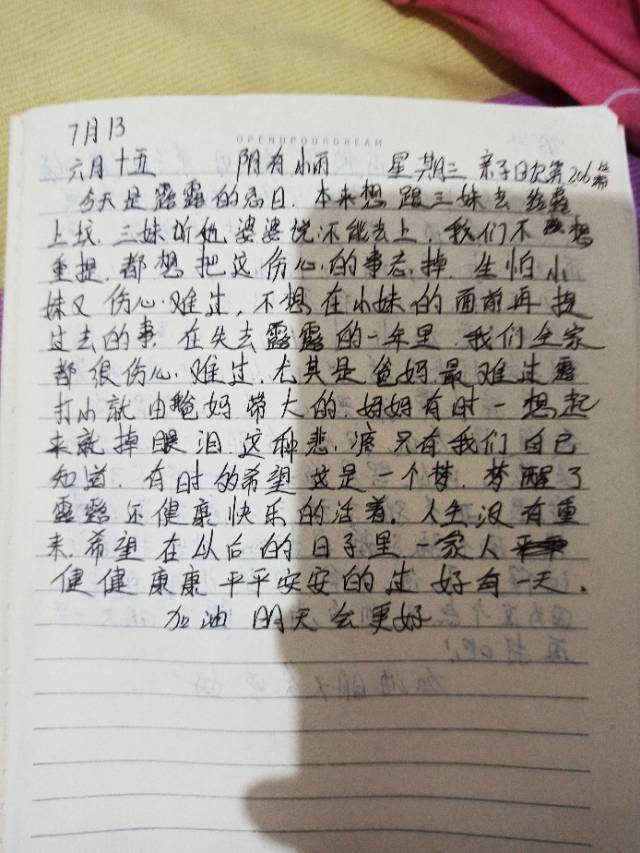 OPENDPOURDREAM
7月13
六月十五 阴有小雨 星期三 亲子日次第206篇
今天是露露的忌日.本来想跟三妹去露露
上坟.三妹听她婆婆说不能去上.我们不想
重提.都想把这伤心的事忘掉.生怕小
妹又伤心难过,不想在小妹的面前再提
过去的事.在失去露露的一年里.我们全家
都很伤心难过.尤其是爸妈最难过露
打小就由爸妈带大的.妈妈有时一想起
来就掉眼泪.这种悲,痛只有我们自己
知道.有时的希望这是一个梦.梦醒了
露露还健康快乐的活着.人生没有重
来.希望在以后的日子里一家人
健健康康平平安安的过好每一天.
加油明天会更好